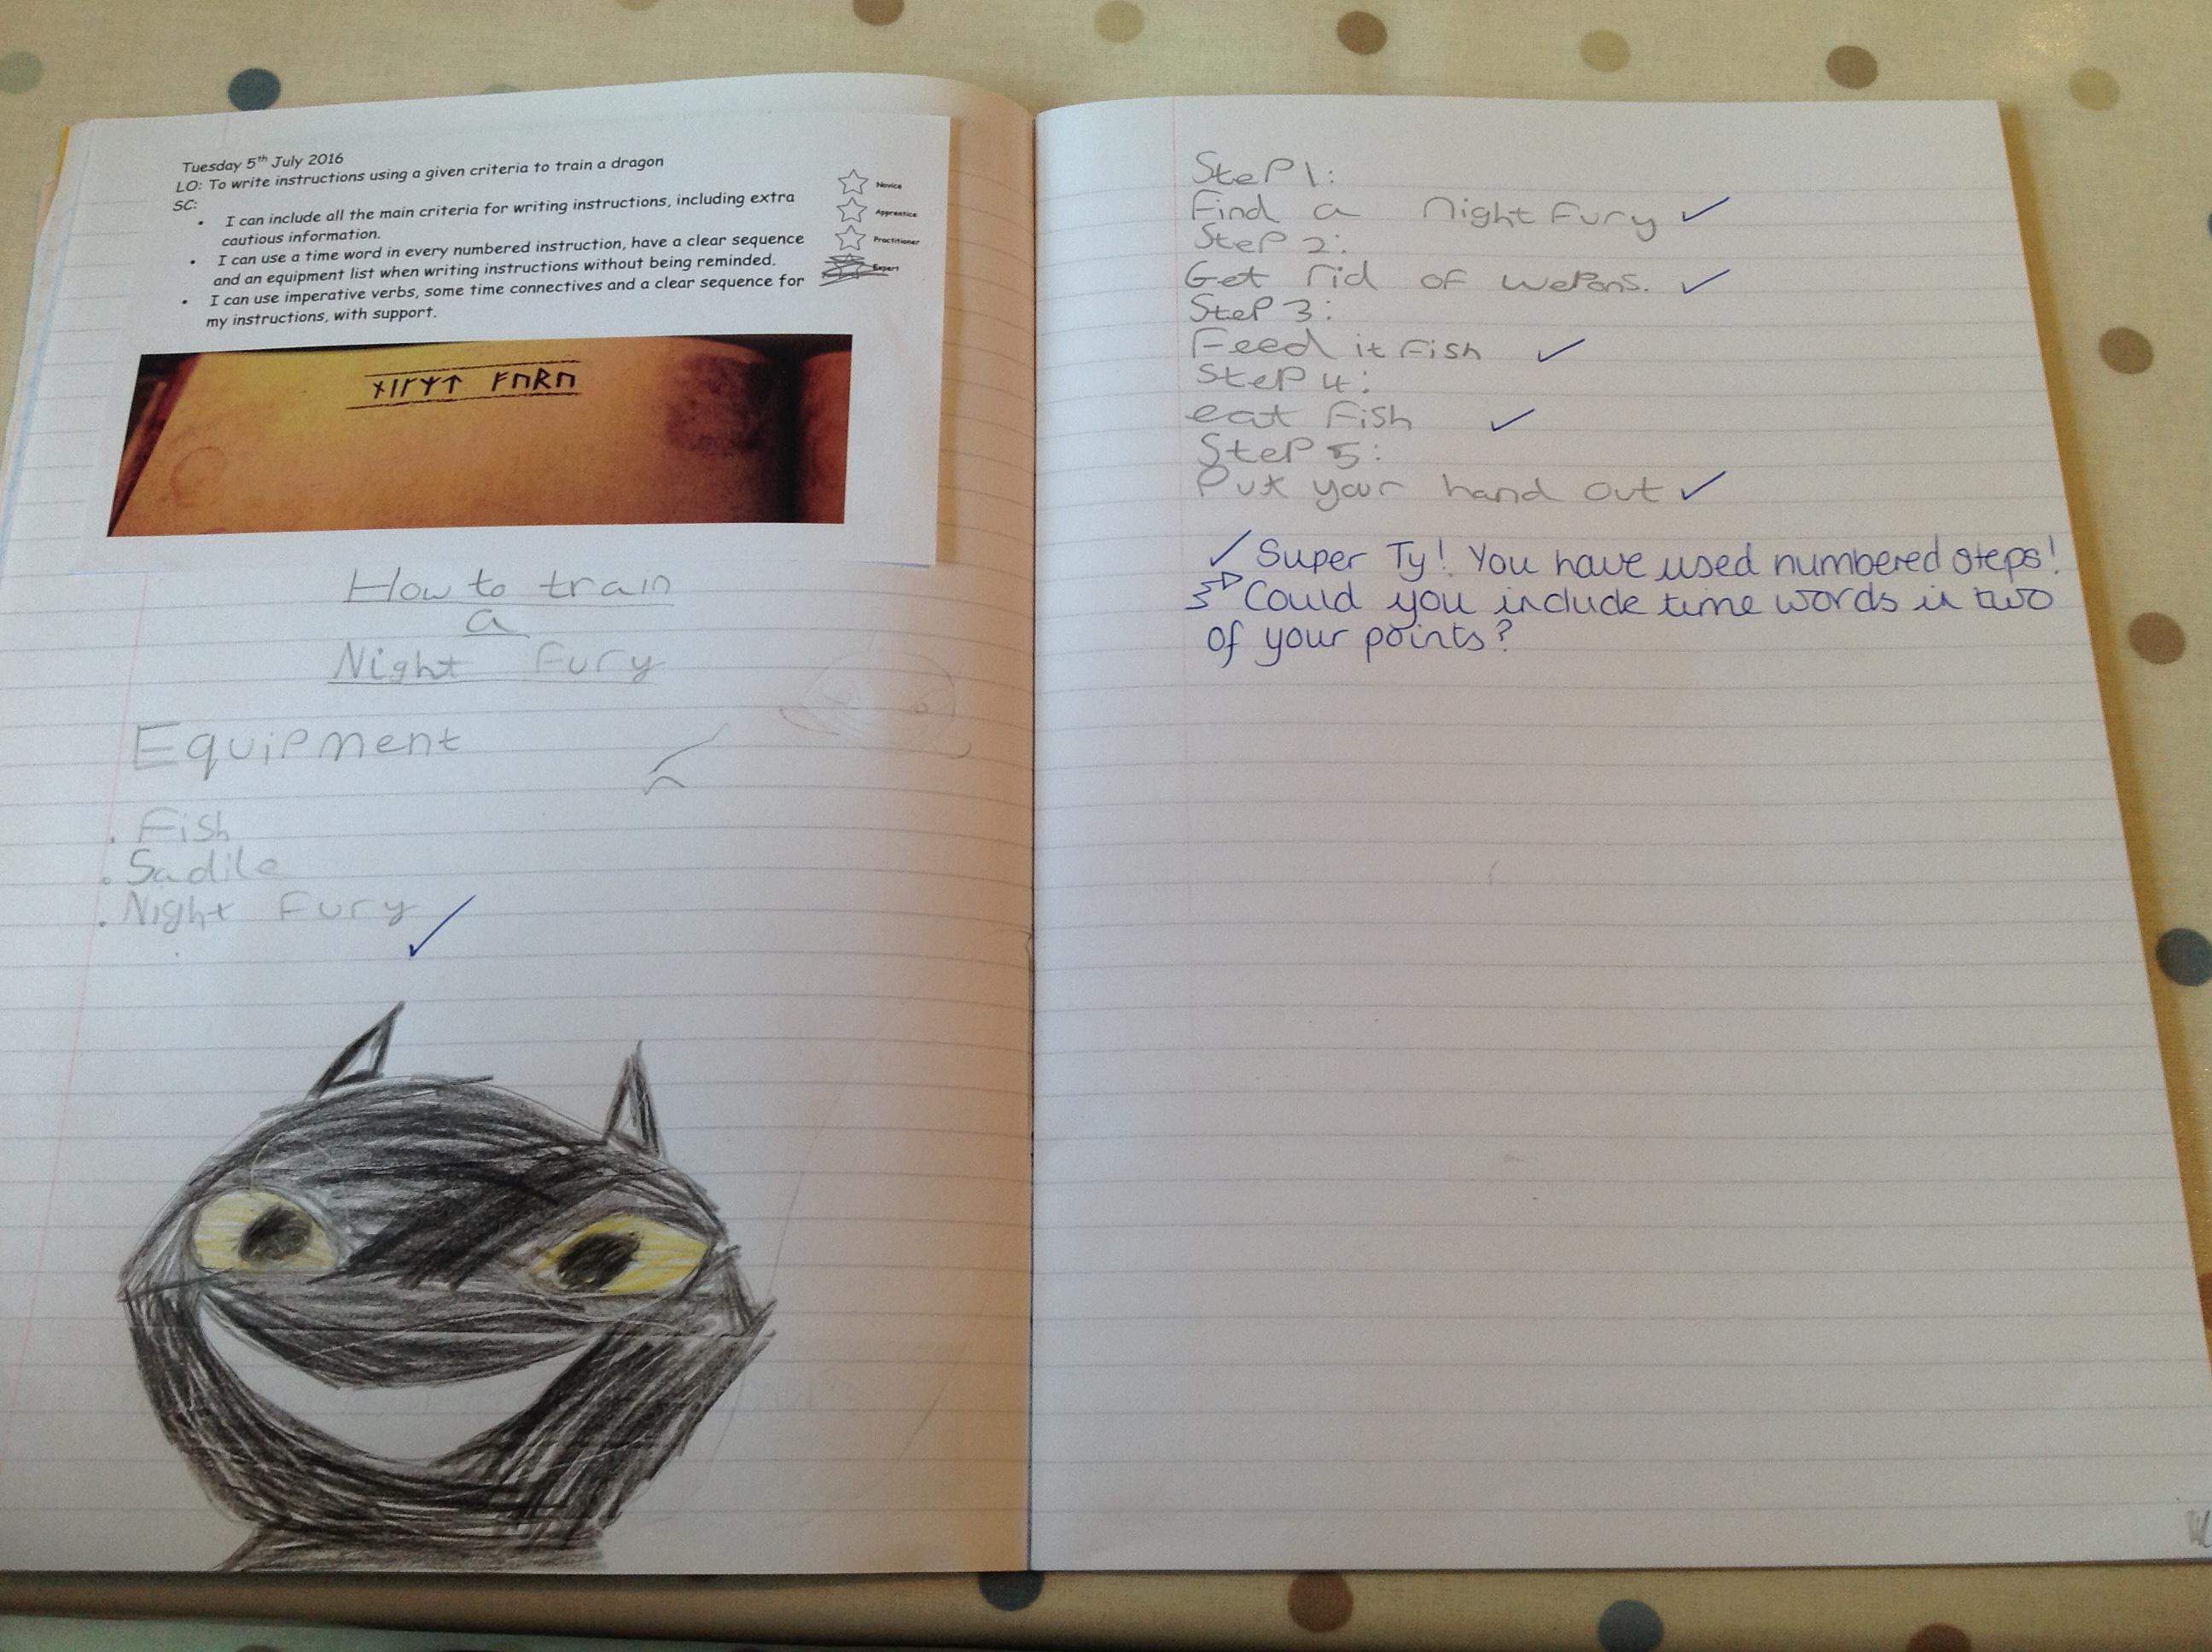 Tuesday 5th July 2016
LO: To write instructions using a given criteria to train a dragon
SC:
• I can include all the main criteria for writing instructions, including extra
cautious information.
• I can use a time word in every numbered instruction, have a clear sequence
and an equipment list when writing instructions without being reminded.
• I can use imperative verbs, some time connectives and a clear sequence for
my instructions, with support.
Novice
Apprentice
Practitioner
Expert
ᚾᛁᚴᛉᛏ ᚠᚢᚱᚢ
How to train
a
Night Fury
Equipment
. Fish
. Sadile
. Night Fury
Step 1:
Find a Night Fury
Step 2:
Get rid of wepons.
Step 3:
Feed it fish
Step 4:
eat fish
Step 5:
Put your hand out
Super Ty! You have used numbered steps!
Could you include time words in two
of your points?